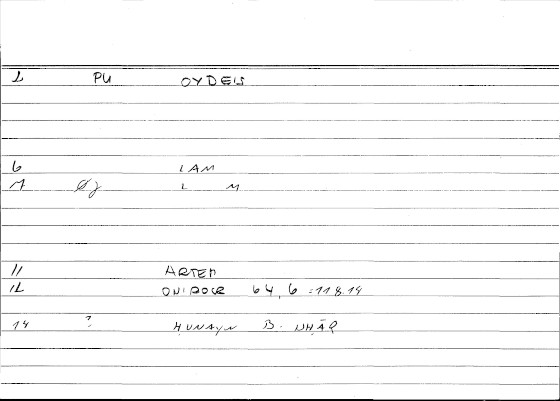 2 PU OYDEIS
6 LAM
7 Øj L M
11 ARTEM
12 ONIROCR 64, 6 = 118.14
14 ? ḤUNAYN B. ISHĀQ